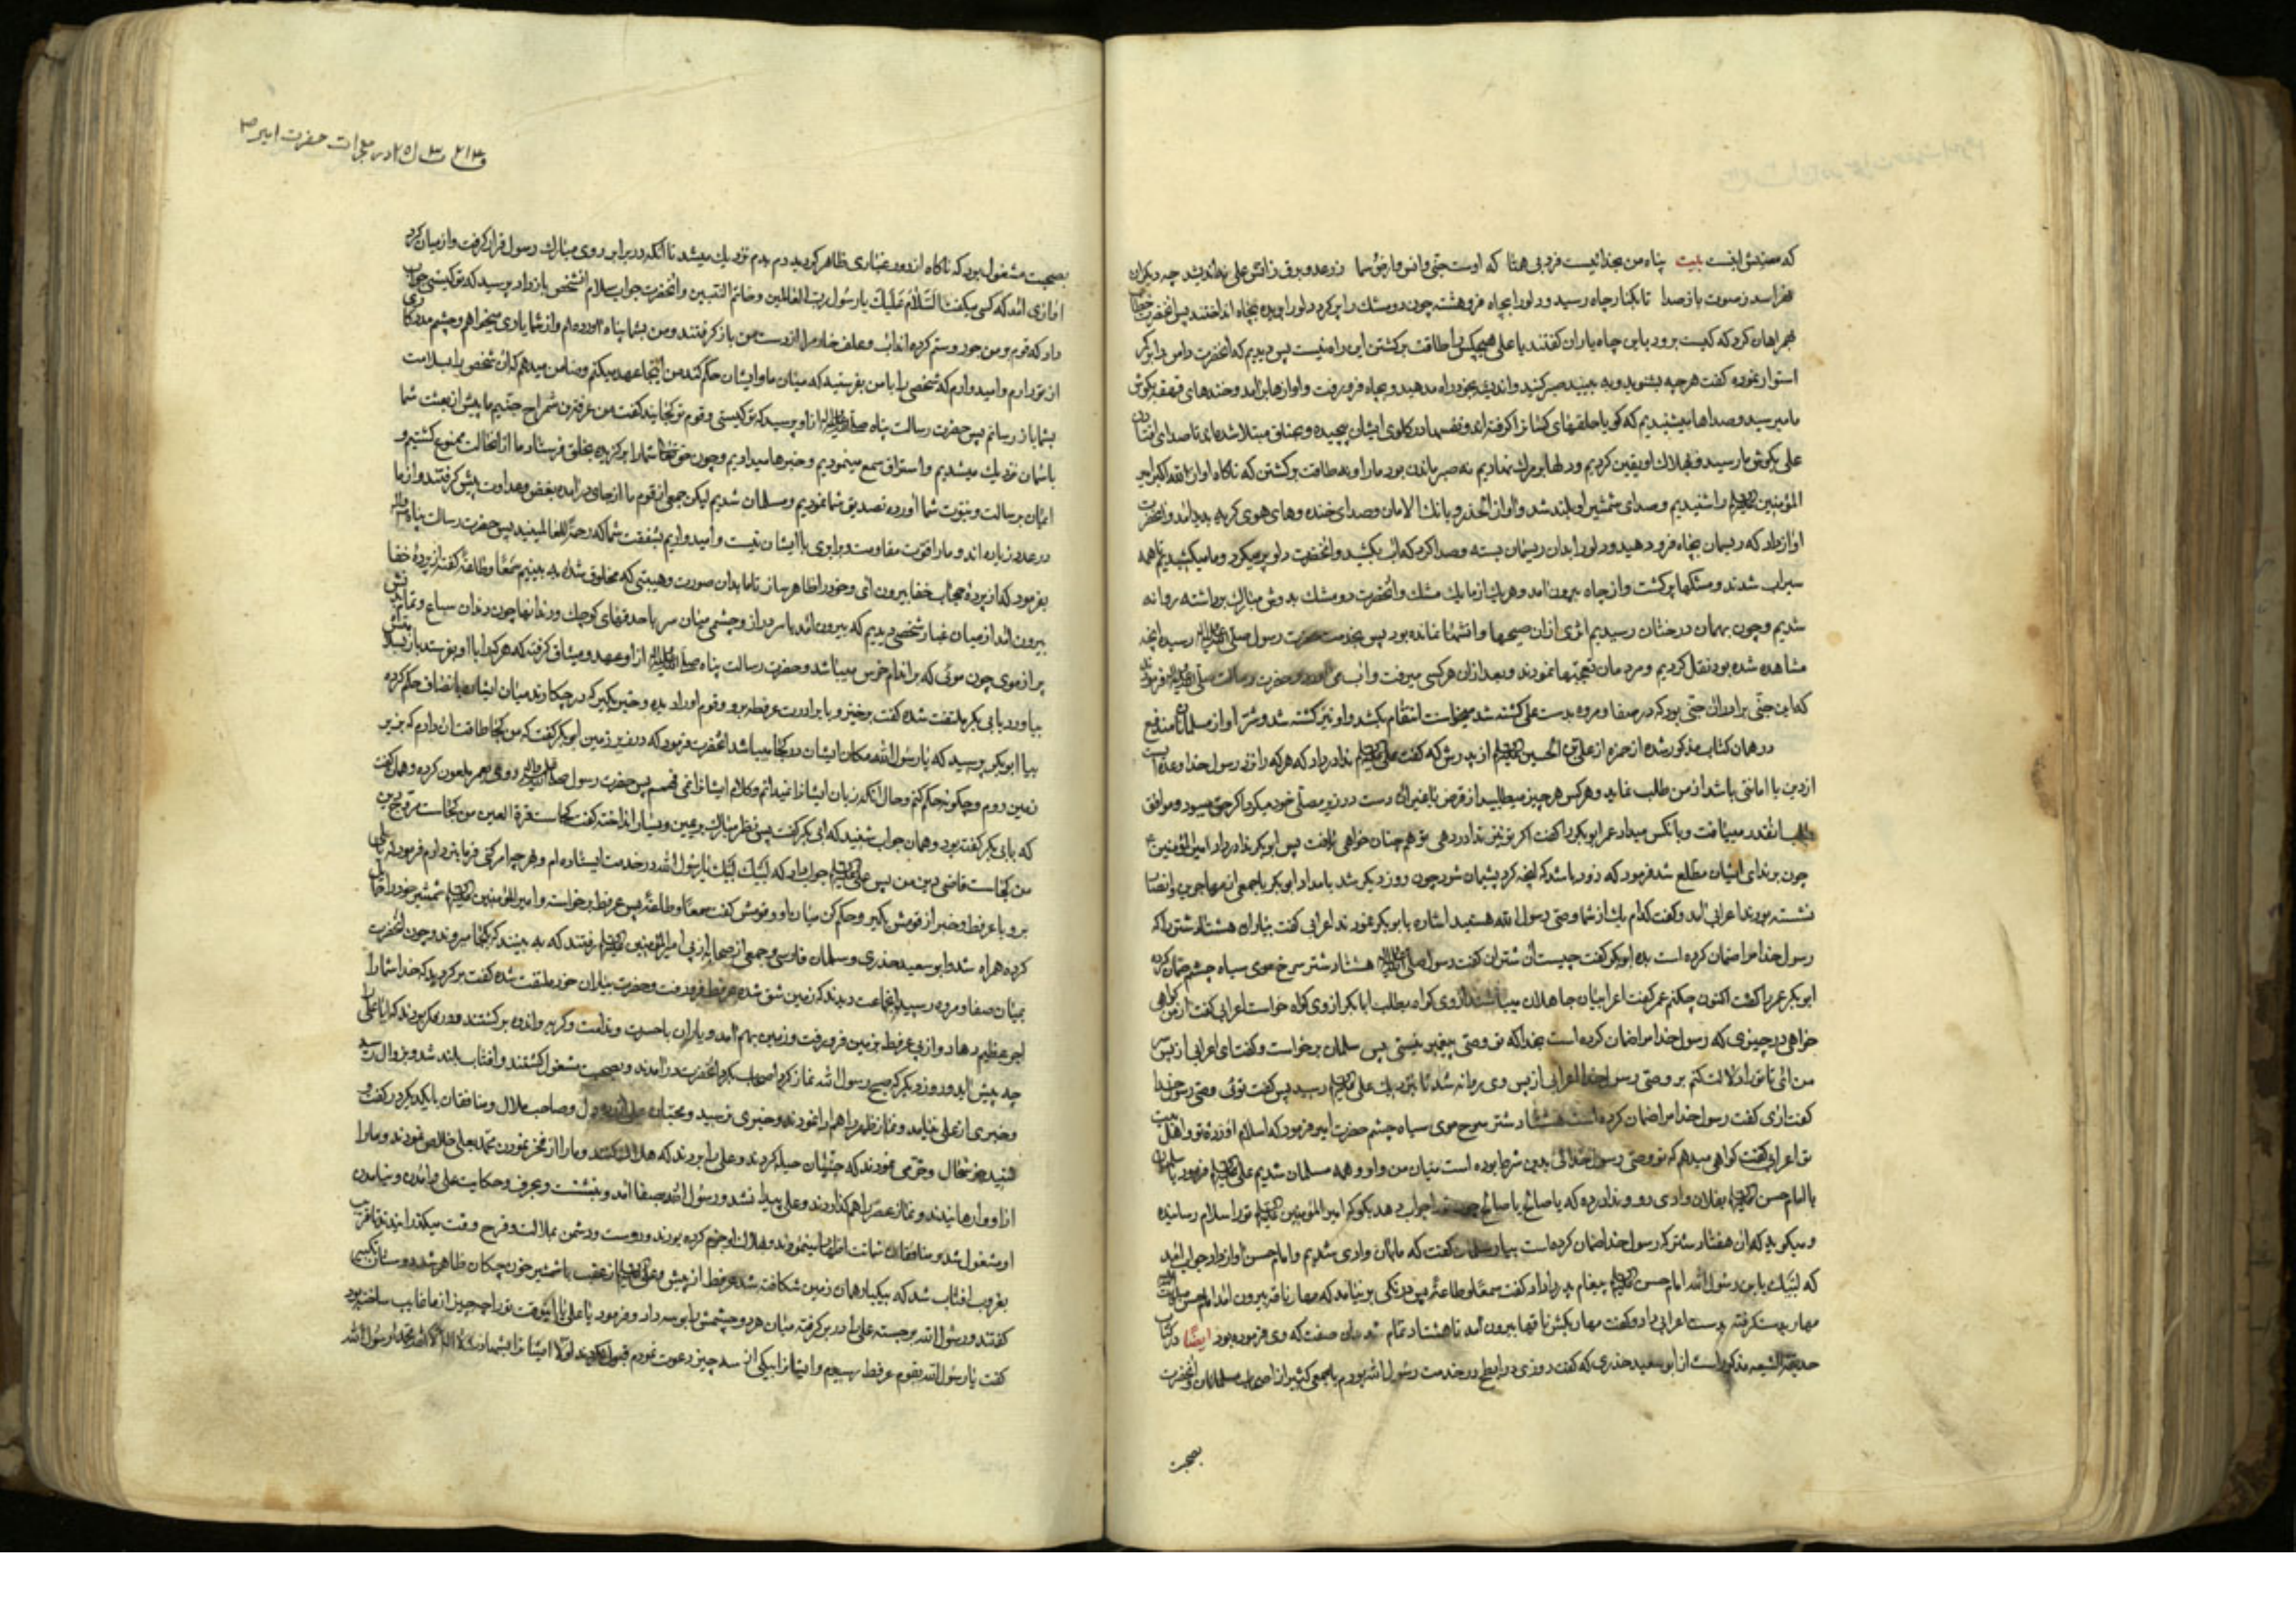 که معنیش اینست بیت پناه من بخدائیست فرد بی همتا که اوست جنی و انس و ارض و سما ز رعد و برق و آتش علی نه اندیشد چه دیگران
نهراسد ز صوت باز صدا تا بکنار چاه رسید و دلو را بچاه فرو هشته چون دو مشک را پر کرد دلو را بریده بچاه انداختند پس آنحضرت خطاب
بهمراهان کرد که کیست برود باین چاه یاران گفتند یا علی هیچکس را طاقت برگشتن این راه نیست پس دیدیم که آنحضرت دامن را بر کمر
استوار نموده گفت هرچه بشنوید و به بینید صبر کنید و اندیشه بخود راه مدهید و بچاه فرو رفت و آوازها برآمد و خنده‌های قهقهه بگوش
ما میرسید و صداها میشنیدیم که گویا حلقهای کسان را گرفته‌اند و نفسها در گلوی ایشان پیچیده و بخناق مبتلا شده‌اند تا صدای افتادن
علی بگوش ما رسید و بهلاک او یقین کردیم و دلها بر مرگ نهادیم نه صبر ماندن بود ما را و نه طاقت برگشتن که ناگاه آواز الله اکبر امیر
المؤمنین را شنیدیم و صدای شمشیر او بلند شد و آواز الحذر و بانک الامان و صدای خنده و های هوی گریه پدید آمد و آنحضرت
آواز داد که ریسمان بچاه فرو دهید و دلو را بدان ریسمان بسته و صدا کرد که آب بکشید و آنحضرت دلو پر میکرد و ما میکشیدیم تا همه
سیراب شدند و مشکها پر گشت و از چاه بیرون آمد و هر یک از ما یک مشک و آنحضرت دو مشک بدوش مبارک برداشته روانه
شدیم و چون بهمان درختان رسیدیم اثری از ان صیحها و آتشها نمانده بود پس بخدمت حضرت رسول صلی الله علیه رسیده آنچه
مشاهده شده بود نقل کردیم و مردمان تعجبها نمودند و بعد از ان هر کسی میرفت و آب می آورد و حضرت رسالت صلی الله علیه فرمودند
که این جنی برادر ان جنی بود که در صفا و مروه بدست علی کشته شد میخواست انتقام بکشد و او نیز کشته شد و شر او از مسلمانان مندفع
در همان کتاب مذکور شده از حمزه از علی بن الحسین از پدرش که گفت علی ندا در داد که هر که را نزد رسول خدا وعده ایست
از دین یا امانتی باشد از من طلب نماید و هر کس هر چیز میطلبید از قرض یا غیر ان دست در زیر مصلی خود میکرد اگر حق میبود و موافق
انقدر مییافت و بآنکس میداد عمر ابوبکر را گفت اگر تو نیز ندا در دهی تو هم چنان خواهی یافت پس ابوبکر ندا در داد امیر المؤمنین
چون بر ندای ایشان مطلع شد فرمود که زود باشد که آنچه کرد پشیمان شود چون روز دیگر شد بامداد ابوبکر با جمعی از مهاجرین و انصار
نشسته بودند اعرابی آمد و گفت کدام یک از شما وصی رسول الله هستید اشاره بابوبکر نمودند اعرابی گفت بیار ان هشتاد شتر را که
رسول خدا مرا ضمان کرده است بده ابوبکر گفت چیست آن شتران گفت رسول صلی الله علیه هشتاد شتر سرخ موی سیاه چشم ضمان کرده
ابوبکر عمر را گفت اکنون چکنم عمر گفت اعرابیان جاهلان میباشند از وی گواه بطلب ابابکر از وی گواه خواست اعرابی گفت از من گواهی
خواهی در چیزی که رسول خدا مرا ضمان کرده است بخدا که تو وصی پیغمبر نیستی پس سلمان برخواست و گفت ای اعرابی از پس
من آئی تا تو را دلالت کنم بر وصی رسول خدا اعرابی از پس وی روانه شد تا نزدیک علی رسید پس گفت توئی وصی رسول خدا
گفت آری گفت رسول خدا مرا ضمان کرده است هشتاد شتر سرخ موی سیاه چشم حضرت امیر فرمود که اسلام آورده تو و اهل بیت
تو اعرابی گفت گواهی میدهم که تو وصی رسول خدائی بدین شرط بوده است میان من و او و همه مسلمان شدیم علی فرمود با سلمان
با امام حسن بفلان وادی رو و ندا در ده که یا صالح یا صالح چون ترا جواب دهد بگو که امیر المؤمنین تو را سلام رسانیده
و میگوید که ان هشتاد شتر که رسول خدا ضمان کرده است بیار سلمان گفت که بدان وادی شدیم و امام حسن آواز داد جواب آمد
که لبیک یابن رسول الله امام حسن پیغام پدر را داد گفت سمعاً و طاعةً پس درنگی بر نیامد که مهار ناقه بیرون آمد امام حسن
مهار بدست گرفته بدست اعرابی داد و گفت مهار بکش ناقها بیرون آمد تا هشتاد تمام شد بدان صفت که وی فرموده بود ایضاً در کتاب
حدیقة الشیعه مذکور است از ابوسعید خدری که گفت روزی در ابطح در خدمت رسول الله بودم با جمعی کثیر از اصحاب مسلمانان و آنحضرت
بصحبت
در معجزات حضرت امیر
بصحبت مشغول بود که ناگاه از دور غباری ظاهر گردید دم بدم نزدیک میشد تا آنکه در برابر روی مبارک رسول قرار گرفت و از میان گرد
آوازی آمد که کسی میگفت السَّلامُ عَلَیکَ یا رسُول ربّ العالمین و خاتم النبیین و آنحضرت جواب سلام آنشخص باز داد پرسید که تو کیستی جواب
داد که قوم بر من جور و ستم کرده‌اند آب و علف خانه مرا از دست من باز گرفتند و من بشما پناه آورده‌ام و از شما یاری میخواهم و چشم مددکاری
از تو دارم و امیدوارم که شخصی را با من بفرستید که میان ما و ایشان حکم کند من اینجا عهد میکنم و ضامن میدهم که ان شخص را بسلامت
بشما باز رسانم پس حضرت رسالت پناه صلی الله علیه از او پرسید که تو کیستی و قوم تو کجایند گفت من عرفطه بن شمراخ جنّیم ما پیش از بعثت شما
باسمان نزدیک میشدیم و استراق سمع مینمودیم و خبرها میدادیم و چون حق تعالی شما را برگزیده بخلق فرستاد ما از انحالت ممنوع گشتیم و
ایمان برسالت و نبوت شما آورده تصدیق شما نمودیم و مسلمان شدیم لیکن جمعی از قوم ما از جای درآمده بغض و عداوت پیش گرفتند و از ما
در عدد زیاده‌اند و ما را قوت مقاومت و برابری با ایشان نیست و امیدواریم بشفقت شما که رحمةً للعالمینید پس حضرت رسالت پناه
بفرمود که از پردهٔ حجاب خفا بیرون آی و خود را ظاهر ساز تا ما بدان صورت و هیبتی که مخلوق شدهٔ به بینیم سمعاً و طاعةً گفته از پردهٔ خفا
بیرون آمد از میان غبار شخصی دیدیم که بیرون آمد با سر دراز و چشمی میان سر با حدقهای کوچک و دندانها چون دندان سباع و تمام تنش
پر از موی چون موئی که بر اندام خرس میباشد و حضرت رسالت پناه صلی الله علیه از او عهد و میثاق گرفته که هر که را با او بفرستد باز بسلامتش
بیاورد بابی بکر ملتفت شده گفت برخیز و با برادرت عرفطه برو و قوم او را دیده و خبر بگیر که در چکارند میان ایشان بانصاف حکم کرده
بیا ابوبکر پرسید که یا رسول الله مکان ایشان در کجا میباشد آنحضرت فرمود که در زیر زمین ابوبکر گفت که من کجا طاقت ان دارم که بزیر
زمین روم و چگونه حکم کنم و حال آنکه زبان ایشانرا نمیدانم و کلام ایشانرا نمی فهمم پس حضرت رسول روی بعمر ملعون کرده و همان گفت
که بابی بکر گفته بود و همان جواب شنید که ابی بکر گفت پس نظر مبارک بر یمین و یسار انداخته گفت کجاست قرة العین من کجاست مروج دین
من کجاست قاضی دین من پس علی جواب داد که لبیک لبیک یا رسول الله در خدمت ایستاده‌ام و هرچه امر کنی فرمانبردارم فرمود که یا علی
برو با عرفطه و خبر از قومش بگیر و حکم کن میان او و قومش گفت سمعاً و طاعةً پس عرفطه برخواست و امیر المؤمنین شمشیر خود را حمایل
کرده همراه شد و ابوسعید خدری و سلمان فارسی و جمعی از صحابه از پی امیر المؤمنین رفتند که به بینند که بکجا میروند و چون آنحضرت
بمیان صفا و مروه رسید انجماعت دیدند که زمین شق شده عرفطه فرو رفت و حضرت بیاران خود ملتفت شده گفت برگردید که خدا شما را
اجر عظیم دهاد و از پی عرفطه بزمین فرو رفت و زمین بهم آمد و یاران با حسرت و ندامت و گریه و اندوه برگشتند و در فکر بودند که ایا علی را
چه پیش آید و روز دیگر که صبح رسول الله نماز کرد اصحاب بگرد آنحضرت درآمدند و بصحبت مشغول گشتند و آفتاب بلند شد و بزوال رسید
و خبری از علی نیامد و نماز ظهر را هم ادا نمودند و خبری نرسید و محبان علی و صاحب ملال و منافقان با یکدیگر در گفت و
شنید و خوشحال و خرّمی نمودند که جنّیان حیله کردند و علی را بردند که هلاک کنند و ما را از فخر نمودن محمد بعلی خلاص نمودند و ما را
از او وارهانیدند و نماز عصر را هم گذاردند و علی پیدا نشد و رسول الله بصفا آمد و بنشست و بحرف و حکایت علی و ماندن و نیامدن
او مشغول شد و منافقان شماتت اظهار مینمودند و بهلاک او جزم کرده بودند و دوست و دشمن بملالت و فرح وقت میگذرانیدند تا قریب
بغروب آفتاب شد که بیکبار همان زمین شکافته شد عرفطه از پیش و علی از عقب با شمشیر خون چکان ظاهر شد دوستان تکبیر
گفتند و رسول الله برجسته علی را در بر گرفته میان هر دو چشمش را بوسه داد و فرمود یا علی تا این وقت تو را چه چیز از ما غایب ساخته بود
گفت یا رسول الله بقوم عرفطه رسیدم و ایشانرا بیکی از سه چیز دعوت نمودم قبول نکردند اولا ایشانرا بشهادت لا اله الا الله محمد رسول الله